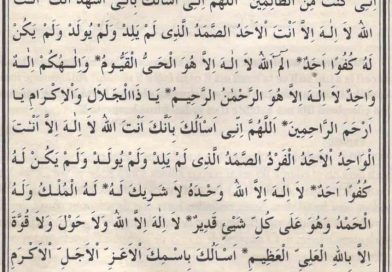 اِنِّى كُنْتُ مِنَ الظَّالِمِينَ* اَللّٰهُمَّ اِنِّى اَسْاَلُكَ بِاَنِّى اَشْهَدُ اَنَّكَ اَنْتَ
اللهُ لَا اِلٰهَ اِلَّا اَنْتَ الْاَحَدُ الصَّمَدُ الَّذِى لَمْ يَلِدْ وَلَمْ يُولَدْ وَلَمْ يَكُنْ
لَهُ كُفُوًا اَحَدٌ* الٓمٓ اَللهُ لَا اِلٰهَ اِلَّا هُوَ الْحَىُّ الْقَيُّومُ* وَاِلٰهُكُمْ اِلٰهٌ
وَاحِدٌ لَا اِلٰهَ اِلَّا هُوَ الرَّحْمٰنُ الرَّحِيمُ* يَا ذَا الْجَلَالِ وَالْاِكْرَامِ يَا
اَرْحَمَ الرَّاحِمِينَ* اَللّٰهُمَّ اِنِّى اَسْاَلُكَ بِاَنَّكَ اَنْتَ اللهُ لَا اِلٰهَ اِلَّا اَنْتَ
الْوَاحِدُ الْاَحَدُ الْفَرْدُ الصَّمَدُ الَّذِى لَمْ يَلِدْ وَلَمْ يُولَدْ وَلَمْ يَكُنْ لَهُ
كُفُوًا اَحَدٌ* لَا اِلٰهَ اِلَّا اللهُ وَحْدَهُ لَا شَرِيكَ لَهُ* لَهُ الْمُلْكُ وَلَهُ
الْحَمْدُ وَهُوَ عَلٰى كُلِّ شَيْئٍ قَدِيرٌ* لَا اِلٰهَ اِلَّا اللهُ وَلَا حَوْلَ وَلَا قُوَّةَ
اِلَّا بِاللهِ الْعَلِىِّ الْعَظِيمِ* اَسْاَلُكَ بِاسْمِكَ الْاَعَزِّ الْاَجَلِّ الْاَكْرَمِ